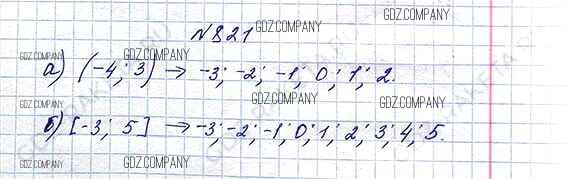 №821
а) (-4; 3) → -3; -2; -1; 0; 1; 2.
б) [-3; 5] → -3; -2; -1; 0; 1; 2; 3; 4; 5.
GDZ.COMPANY
GDZ.COMPANY
GDZ.COMPANY
GDZ.COMPANY
GDZ.COMPANY
GDZ.COMPANY
GDZ.COMPANY
GDZ.COMPANY
GDZ.COMPANY
GDZ.COMPANY
GDZ.COMPANY
GDZ.COMPANY